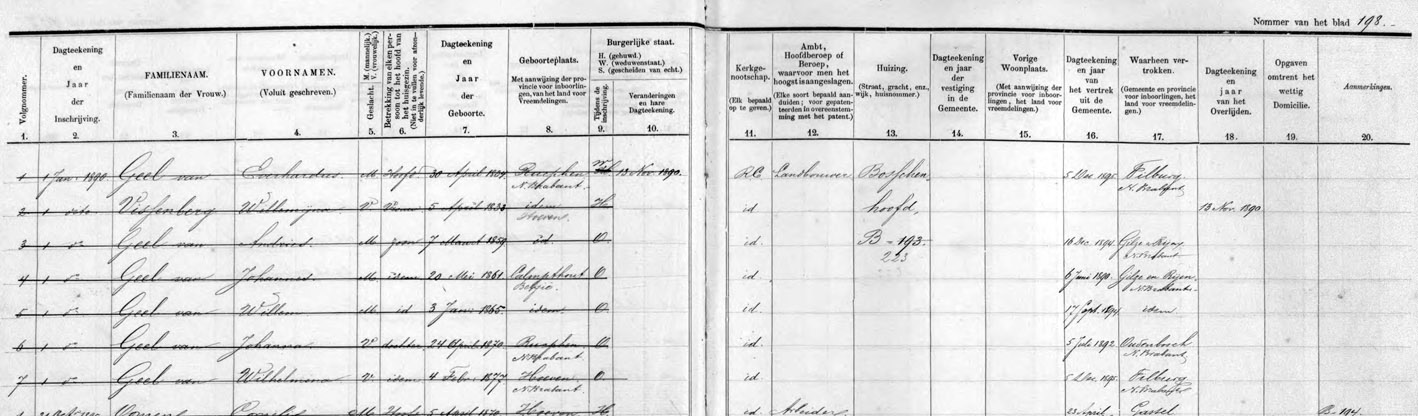 Nommer van het blad 198.
Volgnommer.
Dagteekening en Jaar der Inschrijving.
FAMILIENAAM. (Familienaam der Vrouw.)
VOORNAMEN. (Voluit geschreven.)
Geslacht. M (mannelijk.) V. (vrouwelijk.)
Betrekking van elken persoon tot het hoofd van het huisgezin. (Niet in te vullen voor afzonderlijk levende.)
Dagteekening en Jaar der Geboorte.
Geboorteplaats. Met aanwijzing der provincie voor inboorlingen, van het land voor Vreemdelingen.
Burgerlijke staat. H. (gehuwd.) W. (weduwenstaat.) S. (gescheiden van echt.)
Tijdens de inschrijving.
Veranderingen en hare Dagteekening.
Kerkgenootschap. (Elk bepaald op te geven.)
Ambt, Hoofdberoep of Beroep, waarvoor men het hoogst is aangeslagen. (Elke soort bepaald aanduiden; voor gepatenteerden in overeenstemming met het patent.)
Huizing. (Straat, gracht, enz., wijk, huisnommer.)
Dagteekening en jaar der vestiging in de Gemeente.
Vorige Woonplaats. (Met aanwijzing der provincie voor inboorlingen, het land voor vreemdelingen.)
Dagteekening en jaar van het vertrek uit de Gemeente.
Waarheen vertrokken. (Gemeente en provincie voor inboorlingen, het land voor vreemdelingen.)
Dagteekening en jaar van het Overlijden.
Opgaven omtrent het wettig Domicilie.
Aanmerkingen.
1. 2. 3. 4. 5. 6. 7. 8. 9. 10. 11. 12. 13. 14. 15. 16. 17. 18. 19. 20.
1 1 Jan. 1890 Geel van Everhardus M Hoofd 30 April Rucphen N. Brabant. W 13 Nov. 1890. RC Landbouwer Bosschen, 5 Dec. 1895 Tilburg N. Brabant
2 1 dito Vissenberg Willemijna V Vrouw 5 April 1833 idem Hoeven H id hoofd, 13 Nov. 1890
3 1 d° Geel van Andries. M zoon 7 Maart 1859 id. O id. B - 193. 223 16 Dec. 1894 Gilze Rijen N. Brabant
4 1 d° Geel van Johannes M idem 20 Mei 1861 Calmpthout België. O id. 6 Juni 1890 Gilze en Rijen N. Brabant
5 1 d° Geel van Willem M id 3 Jan. 1865 idem. O id. 17 Sept. 1894 idem
6 1 d° Geel van Johanna V dochter 24 April 1870 Rucphen N. Brabant O id. 5 Juli 1892 Oudenbosch N. Brabant.
7 1 d° Geel van Wilhelmina V idem 4 Febr. 1877 Hoeven N. Brabant O id. 5 Dec. 1895. Tilburg N. Brabant
M Hoofd 5 April 1870 Hoeven H. id Arbeider 23 April Gastel